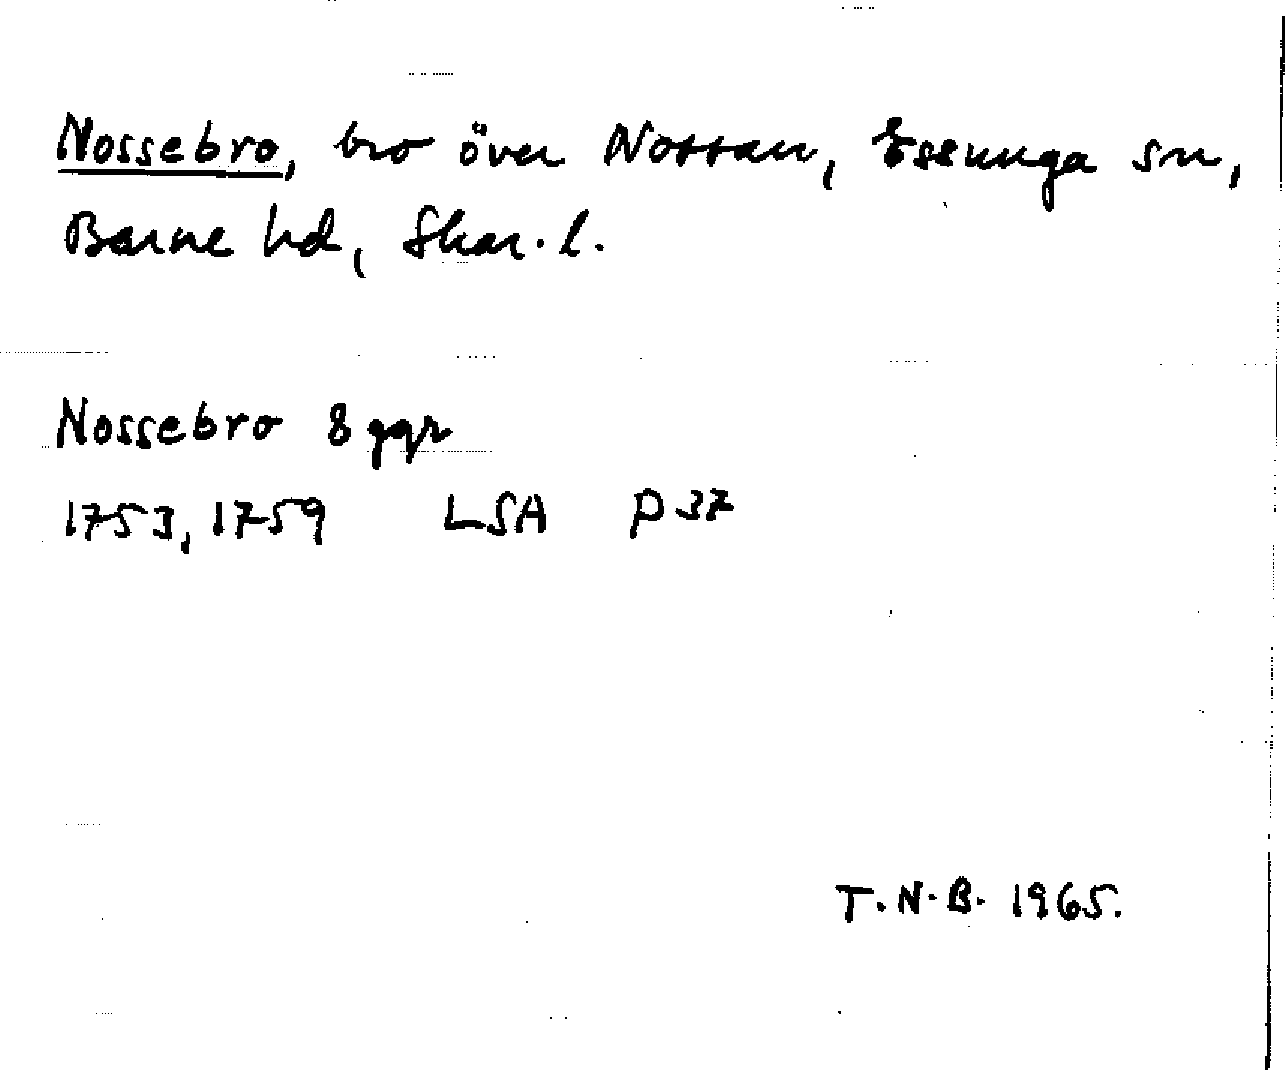 Nossebro, bro över Nossan, Essunga sn,
Barne hd, Skar. l.
Nossebro 8 ggr
1753, 1759 LSA P 37
T.N.B. 1965.